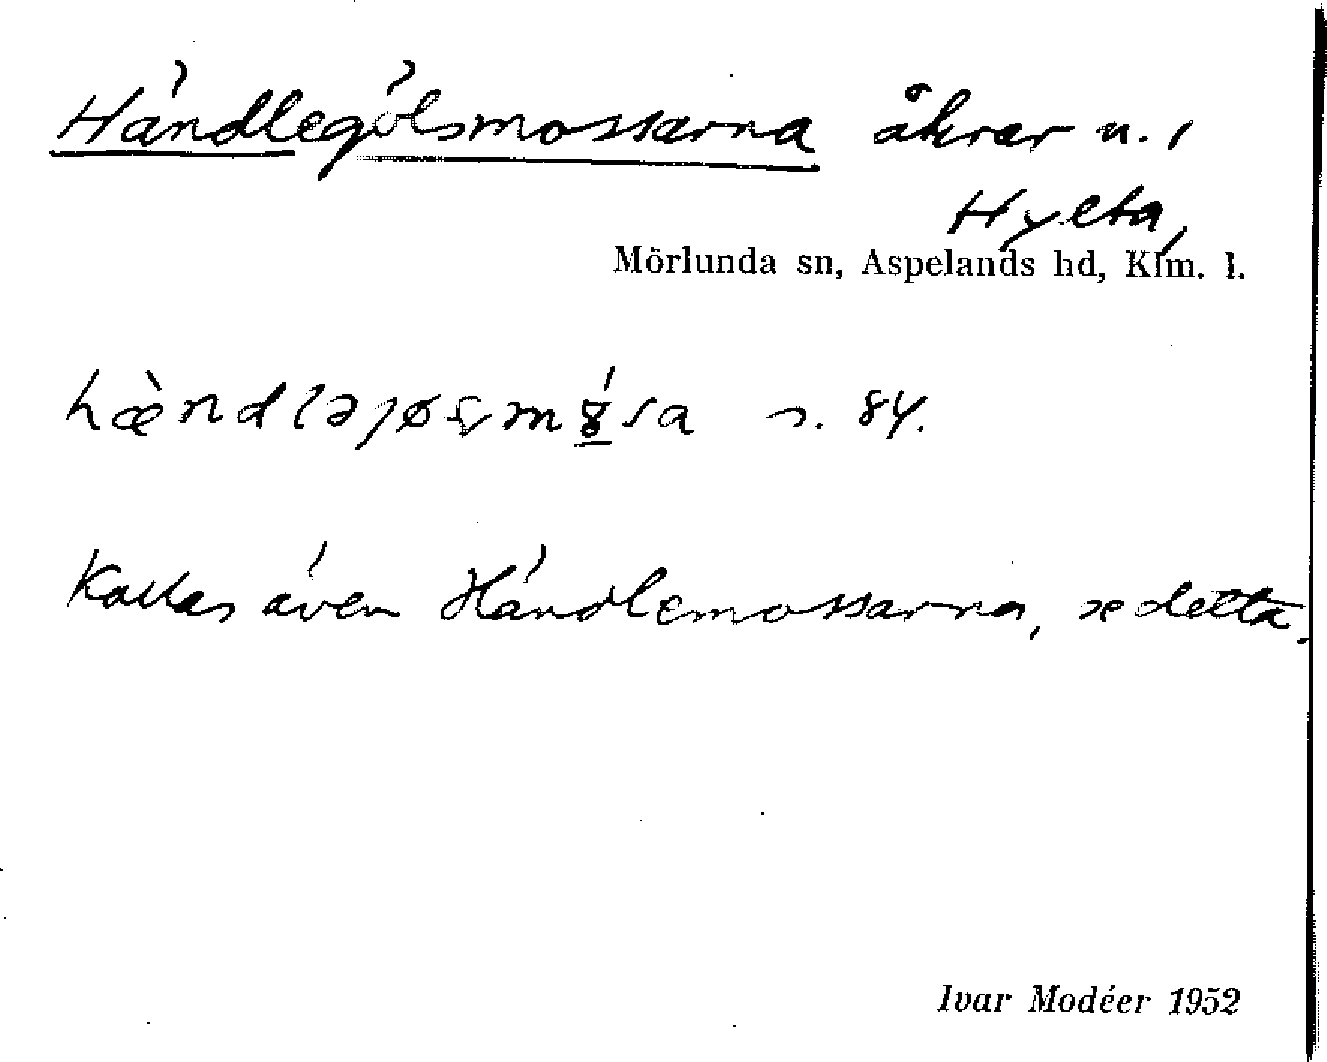 Händlegölsmossarna åkrar n. i
Hylta,
Mörlunda sn, Aspelands hd, Klm. l.
s. 84.
Kallas även Händlemossarna, se detta.
Ivar Modéer 1952